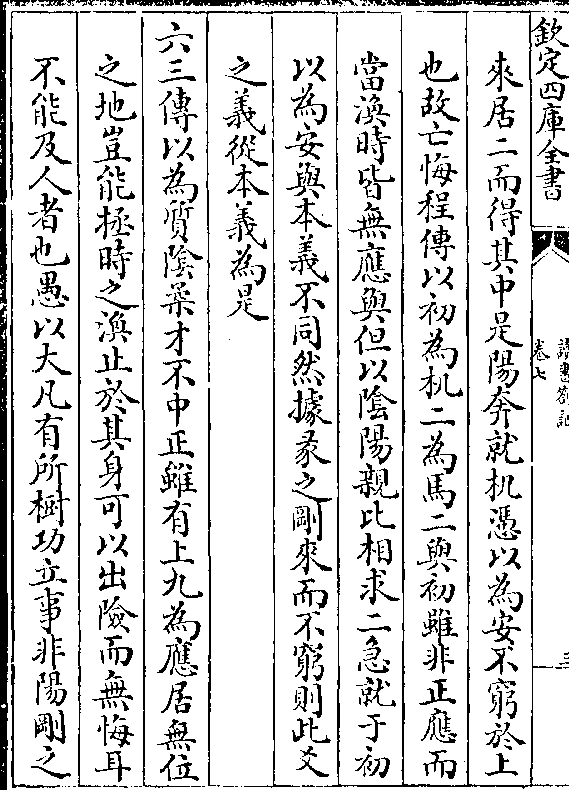 欽定四庫全書
讀易劄記
卷七
三
來居二而得其中是陽奔就机憑以為安不窮於上
也故亡悔程傳以初為机二為馬二與初雖非正應而
當渙時皆無應與但以陰陽親比相求二急就于初
以為安與本義不同然據彖之剛來而不窮則此爻
之義從本義為是
六三傳以為質陰柔才不中正雖有上九為應居無位
之地豈能拯時之渙止於其身可以出險而無悔耳
不能及人者也愚以大凡有所樹功立事非陽剛之